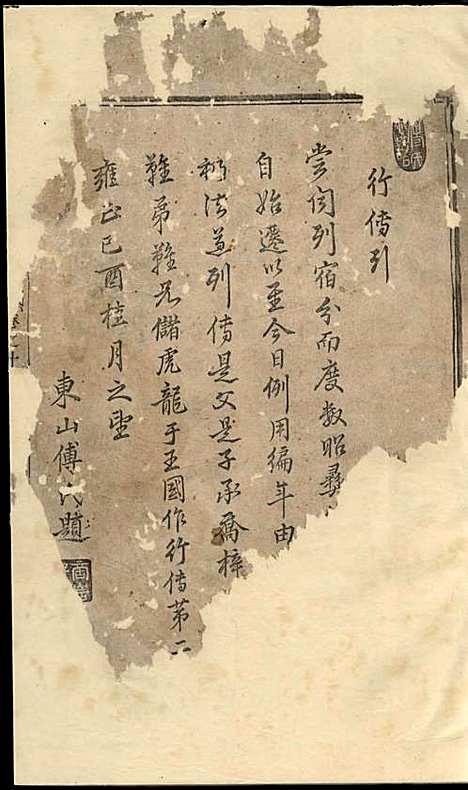 行傳引
嘗聞列宿分而度数昭彝
自始遷以至今日例用編年由
法並列傳是父是子承喬梓
難弟難兄儲虎龍于王國作行傳第二
雍正己酉桂月之望
東山傅氏題